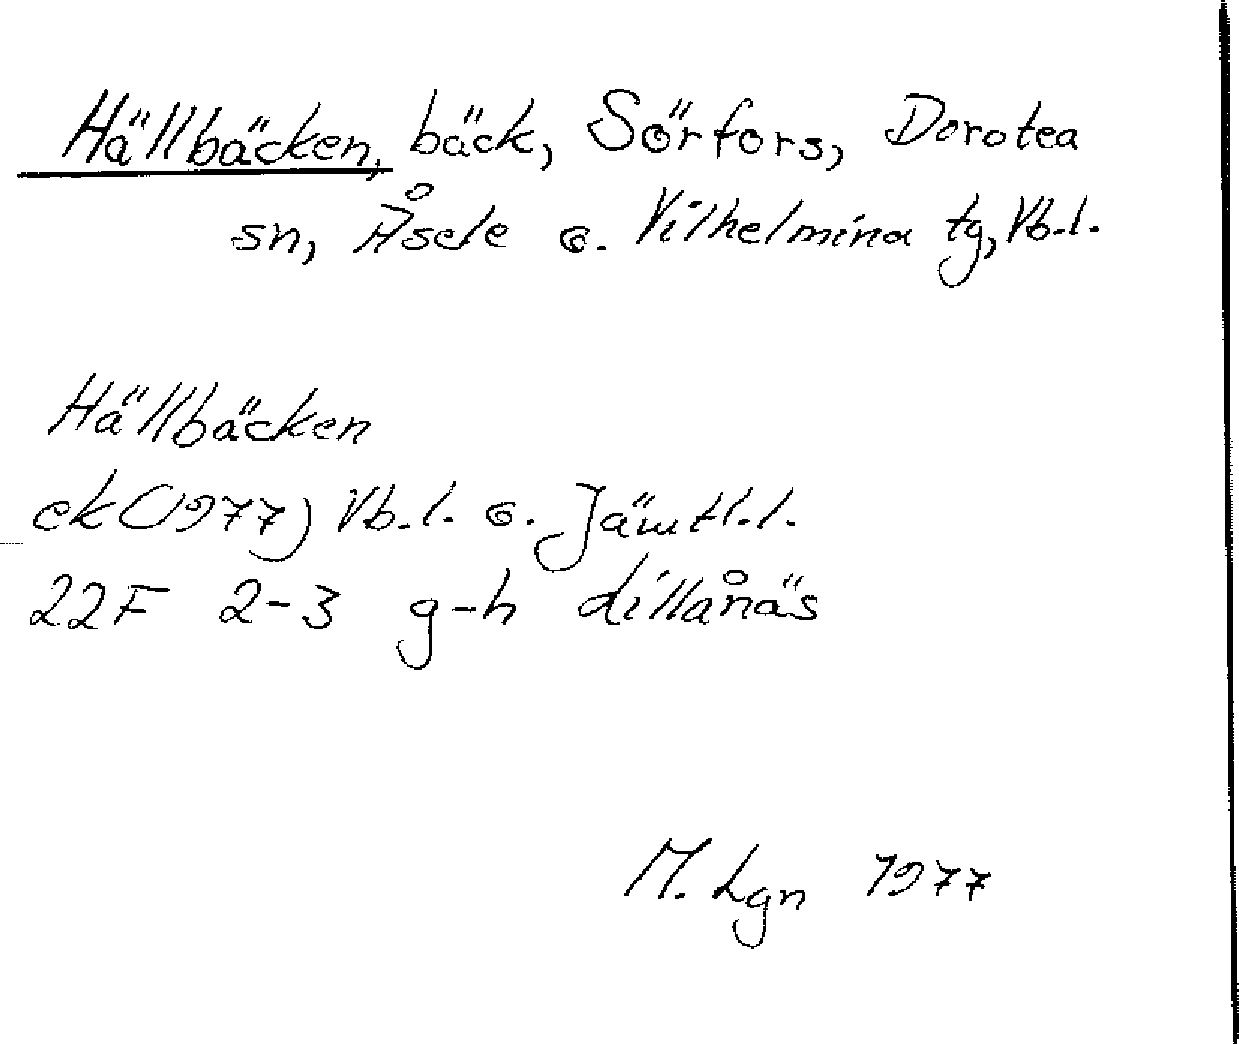 Hällbäcken, bäck, Sörfors, Dorotea
sn, Åsele o. Vilhelmina tg, Vb.l.
Hällbäcken
ek (1977) Vb.l. o. Jämtl.l.
22F 2-3 g-h Lillånäs
M. Lgn 1977